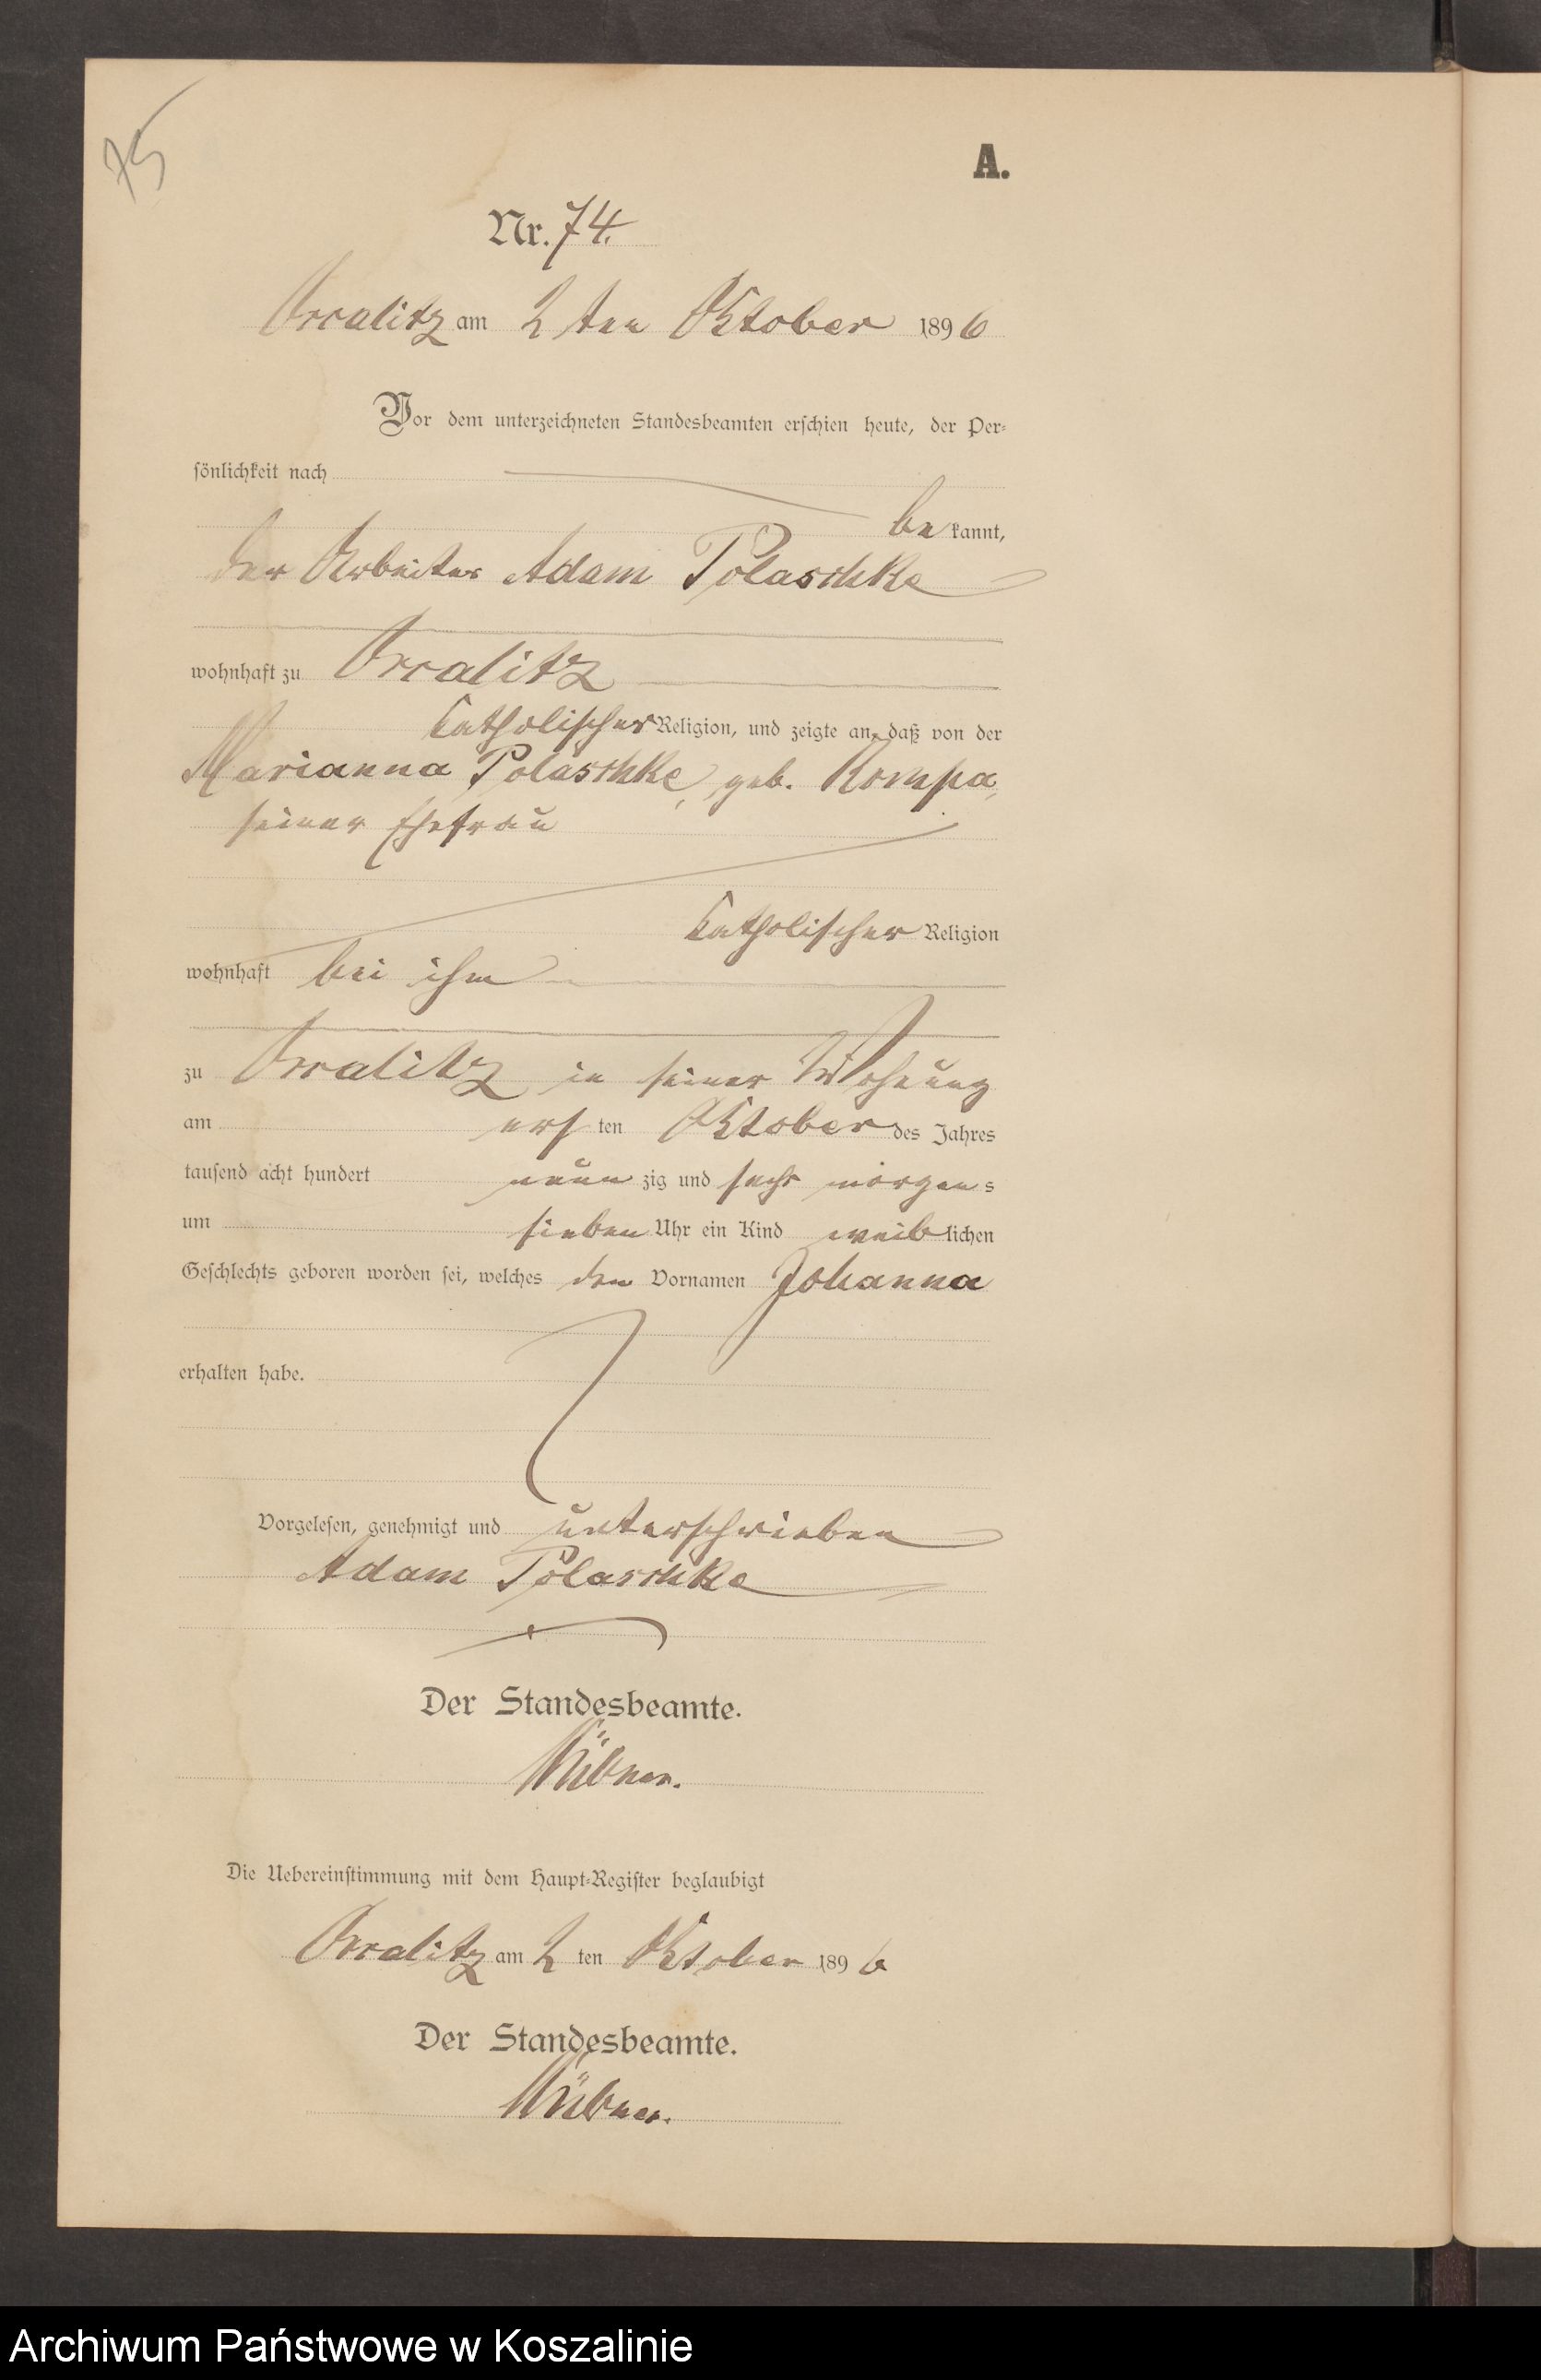 75
A.
Nr. 74.
Arralitz am 2 ten Oktober 1896
Vor dem unterzeichneten Standesbeamten erschien heute, der Per-
sönlichkeit nach
be kannt,
der Arbeiter Adam Polaschke
wohnhaft zu
katholischer Religion, und zeigte an, daß von der
Marianna Polaschke, geb. Rompa,
seiner Ehefrau
katholischer Religion
wohnhaft bei ihm
zu in seiner Wohnung
am ers ten Oktober des Jahres
tausend acht hundert neun zig und sechs morgens
um sieben Uhr ein Kind weiblichen
Geschlechts geboren worden sei, welches den Vornamen Johanna
erhalten habe.
Vorgelesen, genehmigt und unterschrieben
Adam Polaschke
Der Standesbeamte.
Die Uebereinstimmung mit dem Haupt-Register beglaubigt
am 2 ten Oktober 1896
Der Standesbeamte.
Archiwum Państwowe w Koszalinie